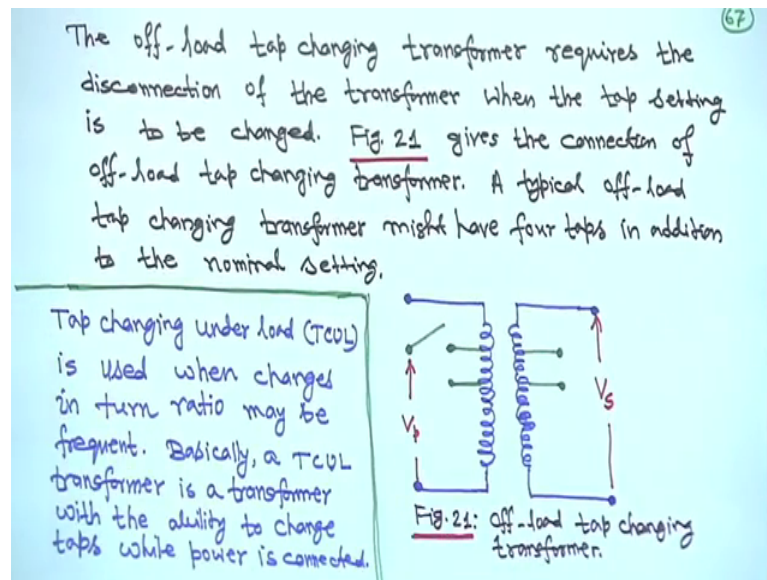 67
The off-load tap changing transformer requires the
disconnection of the transformer when the tap setting
is to be changed. Fig. 21 gives the connection of
off-load tap changing transformer. A typical off-load
tap changing transformer might have four taps in addition
to the nominal setting.
Tap changing under load (TCUL)
is used when changes
in turn ratio may be
frequent. Basically, a TCUL
transformer is a transformer
with the ability to change
taps while power is connected.
Vp
Vs
Fig. 21: Off-load tap changing
transformer.